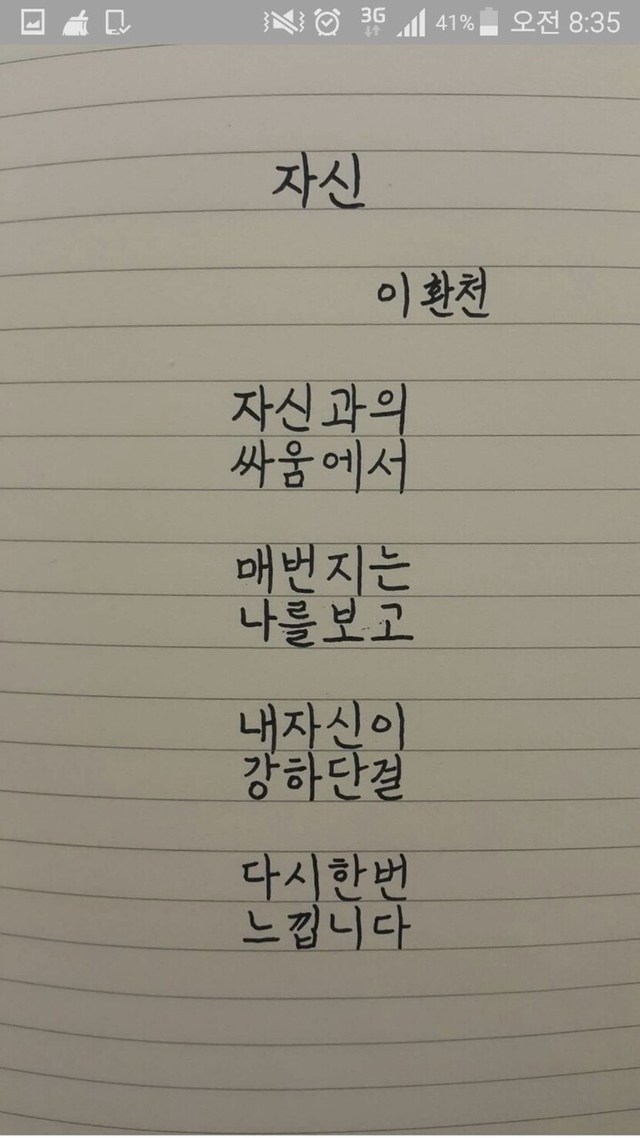 3G 41% 오전 8:35
자신
이환천
자신과의
싸움에서
매번지는
나를보고
내자신이
강하단걸
다시한번
느낍니다